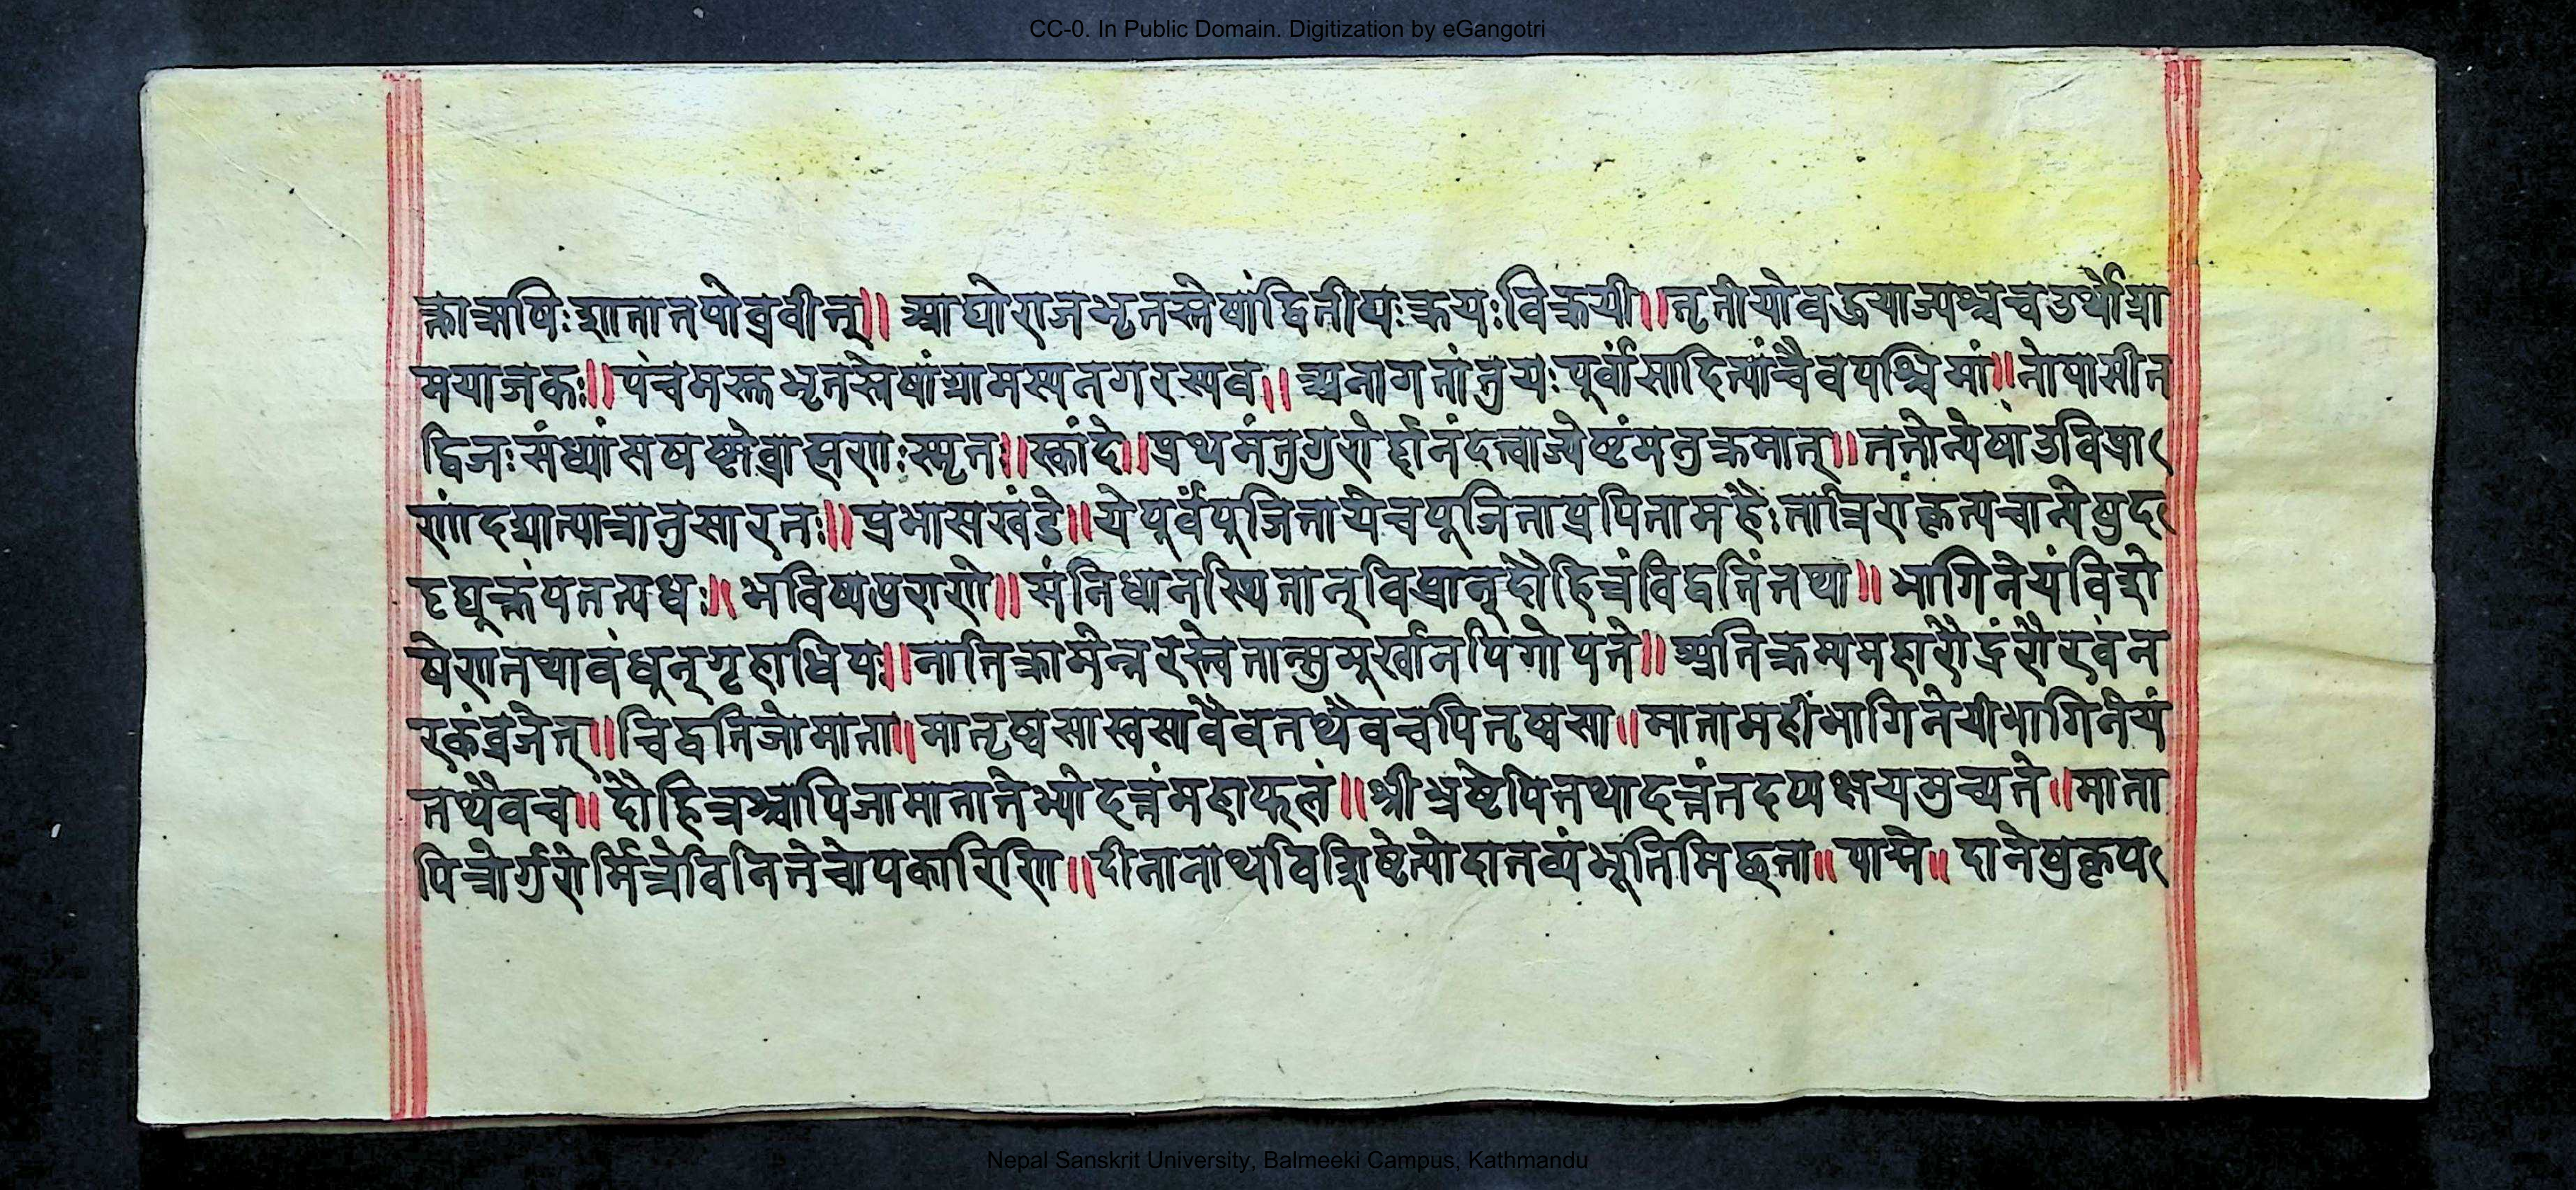 CC-0. In Public Domain. Digitization by eGangotri
क्ताऋषिःशातातपोव्रवीत्॥ आद्योराजभृतस्तेषांद्वितीयःक्रयःविक्रयी॥तृतीयोवहुयाज्यश्चचतुर्थोग्रा
मयाजकः॥पंचमस्तभृतस्तेषांग्रामस्यनगरस्यव॥अनागतांतुयःपूर्वांसादित्यांचैवपश्चिमां॥नोपासीत
द्विजःसंध्यांसषष्टोव्राह्मणःस्मृतः॥स्कांदे॥प्रथमंतुगुरोर्द्दानंदत्वाज्येष्टंमनुक्रमात्॥ततोन्येषांउविप्रा
णांदद्यात्पात्रानुसारतः॥प्रभासखंडे॥येपूर्वंपूजितायेचपूजिताप्रपितामहैः
॥भविष्यपुराणे॥संनिधानस्थितान्विप्रान्दौहित्रंविद्वतिंतथा॥भागिनेयंविशे
षेणतथावंधून्गृहाधिपः॥नातिक्रामेन्नरस्त्वेतान्सुमूर्खानपिगोपते॥अतिक्रम्यमहारौद्रंरौरवंन
रकंव्रजेत्॥विद्वतिर्जामाता॥मातृष्वसास्वसावैवतथैवचपितृष्वसा॥मातामहींभागिनेयीभागिनेयं
तथैवच॥दौहित्रश्चापिजामातातेभ्योदत्तंमहाफलं॥श्रीभ्रष्टेपितथादत्तंतदप्यक्षयमुच्यते॥माता
पित्रोर्गुरोर्मित्रेविनितेचोपकारिणि॥दीनानाथविशिष्टेत्योदातव्यंभूतिमिछता॥पाद्मे॥दानेषुकृप
Nepal Sanskrit University, Balmeeki Campus, Kathmandu